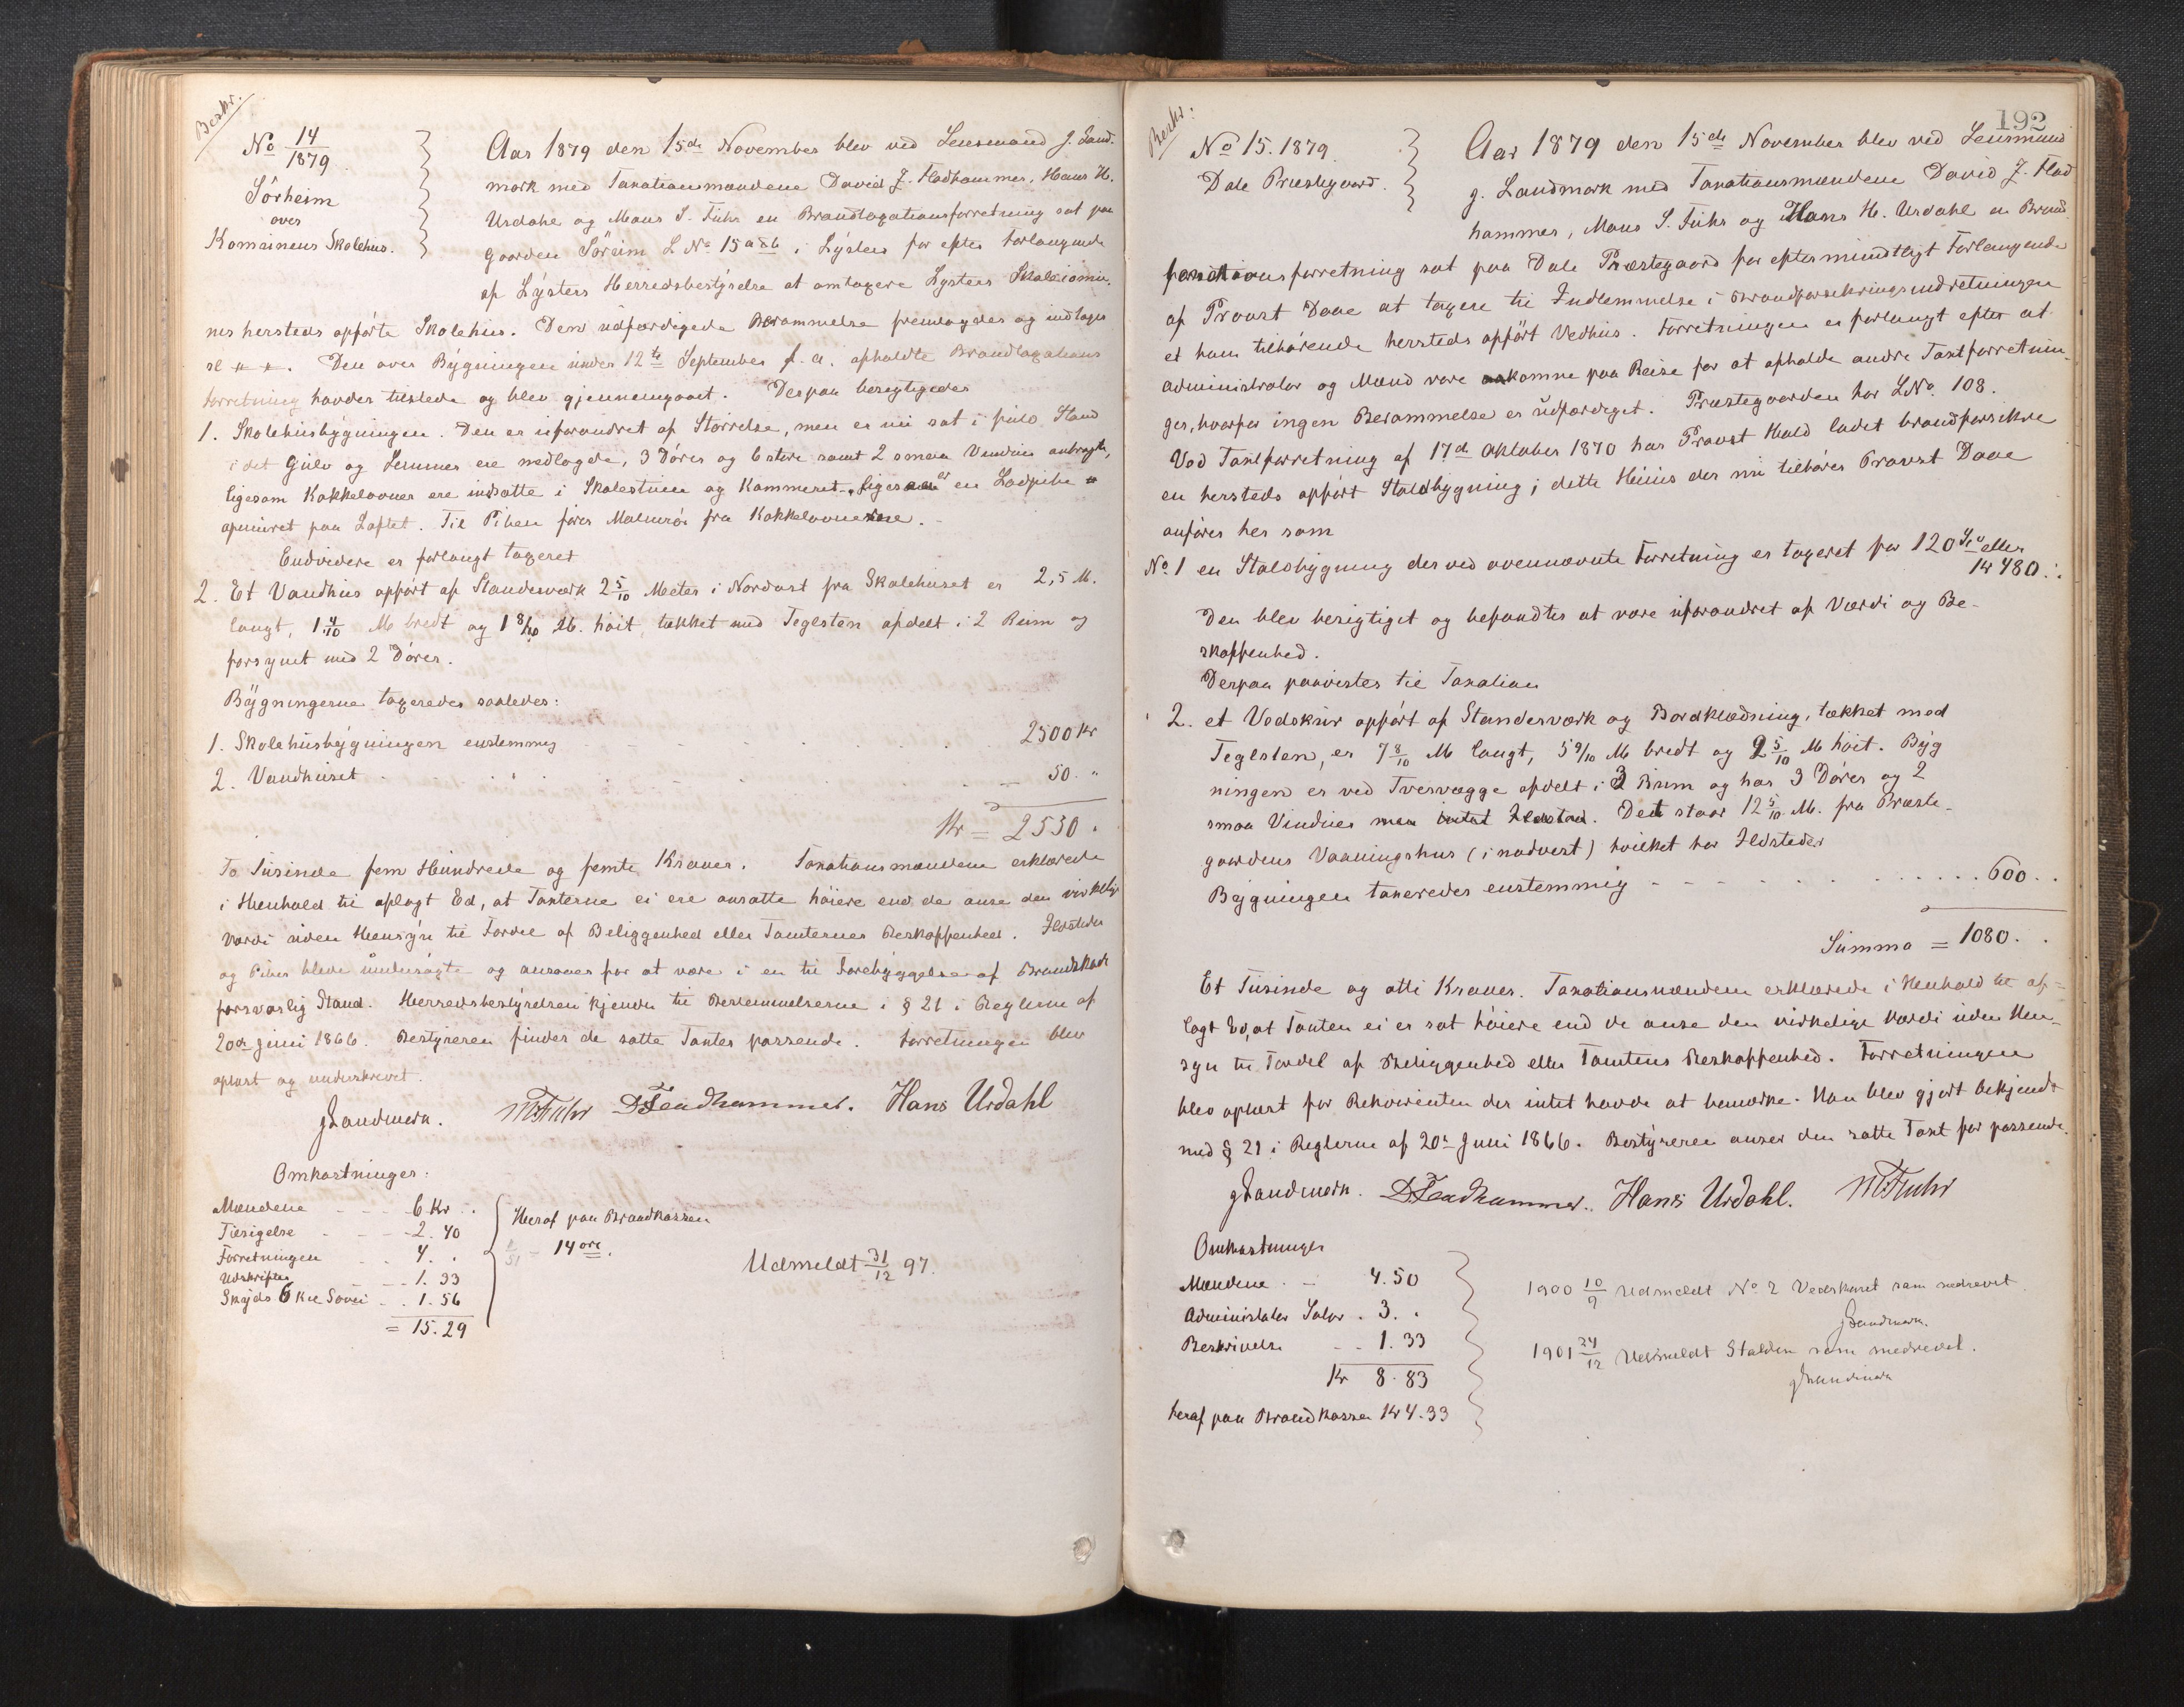 Beskr.
No 14/1879
Sörheim
over
Komunens Skolehus.
Aar 1879 den 15de November blev ved Lensmand J. Land-
mark med Taxationsmændene David J. Fladhammer, Hans H.
Urdahl og Mons S. Fuhr en Brandtaxationsforretning sat paa
gaarden Söreim L No 15 a & b i Lyster for efter Forlangende
af Lysters Herredsbestyrelse at omtaxere Lysters Skolecomu-
nes hersteds opförte Skolehus. Den udfærdigede Berammelse fremlagdes og indtages
sl. Den over Bygningen under 12te September f. a. afholdte Brandtaxations
forretning havdes tilstede og blev gjennemgaaet. Derpaa besigtigedes
1. Skolehusbygningen. Den er uforandret af Störrelse, men er nu sat i fuld Stand
idet Gulv og Lemmer ere nedlagde, 3 Dörer og 6 större samt 2 smaa Vinduer anbragte,
ligesom Kakkelovner ere indsatte i Skolestuen og Kammeret, ligesaa er en Lodpibe
opmuret paa Loftet. Til Piben förer Malmrör fra Kakkelovnene.
Endvidere er forlangt taxeret
2. Et Vandhus opfört af Standerværk 2 5/10 Meter i Nordost fra Skolehuset er 2,5 M.
langt, 1 4/10 M bredt og 1 8/10 M. höit, tækket med Teglsten afdelt i 2 Rum og
forsynet med 2 Dörer.
Bygningerne taxeredes saaledes:
1. Skolehusbygningen enstemmig 2500 Kr
2. Vandhuset 50. "
Kr = 2550.
To Tusinde fem Hundrede og femti Kroner. Taxationsmændene erklærede
i Henhold til aflagt Ed, at Taxterne ei ere ansatte höiere end de anse den virkelige
Værdi uden Hensyn til Fordel af Beliggenhed eller Tomternes Beskaffenhed. Ildsteder
og Piber bleve undersögte og ansaaes for at være i en til Forebyggelse af Brandskade
forsvarlig Stand. Herredsbestyrelsen kjender til Bestemmelserne i § 21 i Reglerne af
20de Juni 1866. Bestyreren finder de satte Taxter passende. Forretningen blev
oplæst og underskrevet.
JLandmark. MSFuhr DJFladhammer. Hans Urdahl
Omkostninger:
Mændene 6 Kr
Tilsigelse 2. 40
Forretningen 4.
Udskriften 1. 33
Skyds 6 Kil. 1. 56
= 15. 29
Heraf paa Brandkassen
14 öre.
Udmeldt 31/12 97.
192
Beskr.
No 15. 1879.
Dale Præstegaard.
Aar 1879 den 15de November blev ved Lensmand
J. Landmark med Taxationsmændene David J. Flad
hammer, Mons S. Fuhr og Hans H. Urdahl en Brand
forretning sat paa Dale Præstegaard for efter mundtligt Forlangende
af Provst Daae at taxere til Indlemmelse i Brandforsikringsindretningen
et ham tilhörende hersteds opfört Vedhus. Forretningen er forlangt efter at
Administrator og Mænd vare ankomne paa Reise for at afholde andre Taxtforretnin-
ger, hvorfor ingen Berammelse er udfærdiget. Præstegaarden har LNo. 108.
Ved Taxtforretning af 17de Oktober 1870 har Provst Hald ladet brandforsikre
en hersteds opfört Staldbygning; dette Huus der nu tilhörer Provst Daae
anföres her som
No. 1 en Staldbygning der ved ovennævnte Forretning er taxeret for 120 Spd eller
Kr 480.
Den blev besigtiget og befandtes at være uforandret af Værdi og Be-
skaffenhed.
Derpaa paavistes til Taxation
2. et Vedskur opfört af Standerværk og Bordklædning, tækket med
Teglsten, er 7 8/10 M langt, 5 9/10 M bredt og 2 5/10 M höit. Byg
ningen er ved Tversvægge afdelt i 3 Rum og har 3 Dörer og 2
smaa Vinduer men intet Ildsted. Det staar 12 5/10 M. fra Præste-
gaardens Vaaningshus (i nordvest) hvilket har Ildsteder
Bygningen taxeredes enstemmig 600.
Summa = 1080.
Et Tusinde og otti Kroner. Taxationsmændene erklærede i Henhold til af-
lagt Ed, at Taxten ei er sat höiere end de anse den virkelige Værdi uden Hen-
syn til Fordel af Beliggenhed eller Tomtens Beskaffenhed. Forretningen
blev oplæst for Rekvirenten der intet havde at bemærke. Han blev gjort bekjendt
med § 21 i Reglerne af 20de Juni 1866. Bestyreren anser den satte Taxt for passende.
JLandmark. DJFladhammer. Hans Urdahl. MSFuhr
Omkostninger
Mændene 4. 50
Administrator Salær. 3.
Beskrivelse 1. 33
Kr 8. 83
heraf paa Brandkassen Kr 4. 33
1900 10/9 Udmeldt No 2 Vedskuret som nedrevet.
JLandmark.
1901 24/12 Udmeldt Stalden som nedrevet.
JLandmark